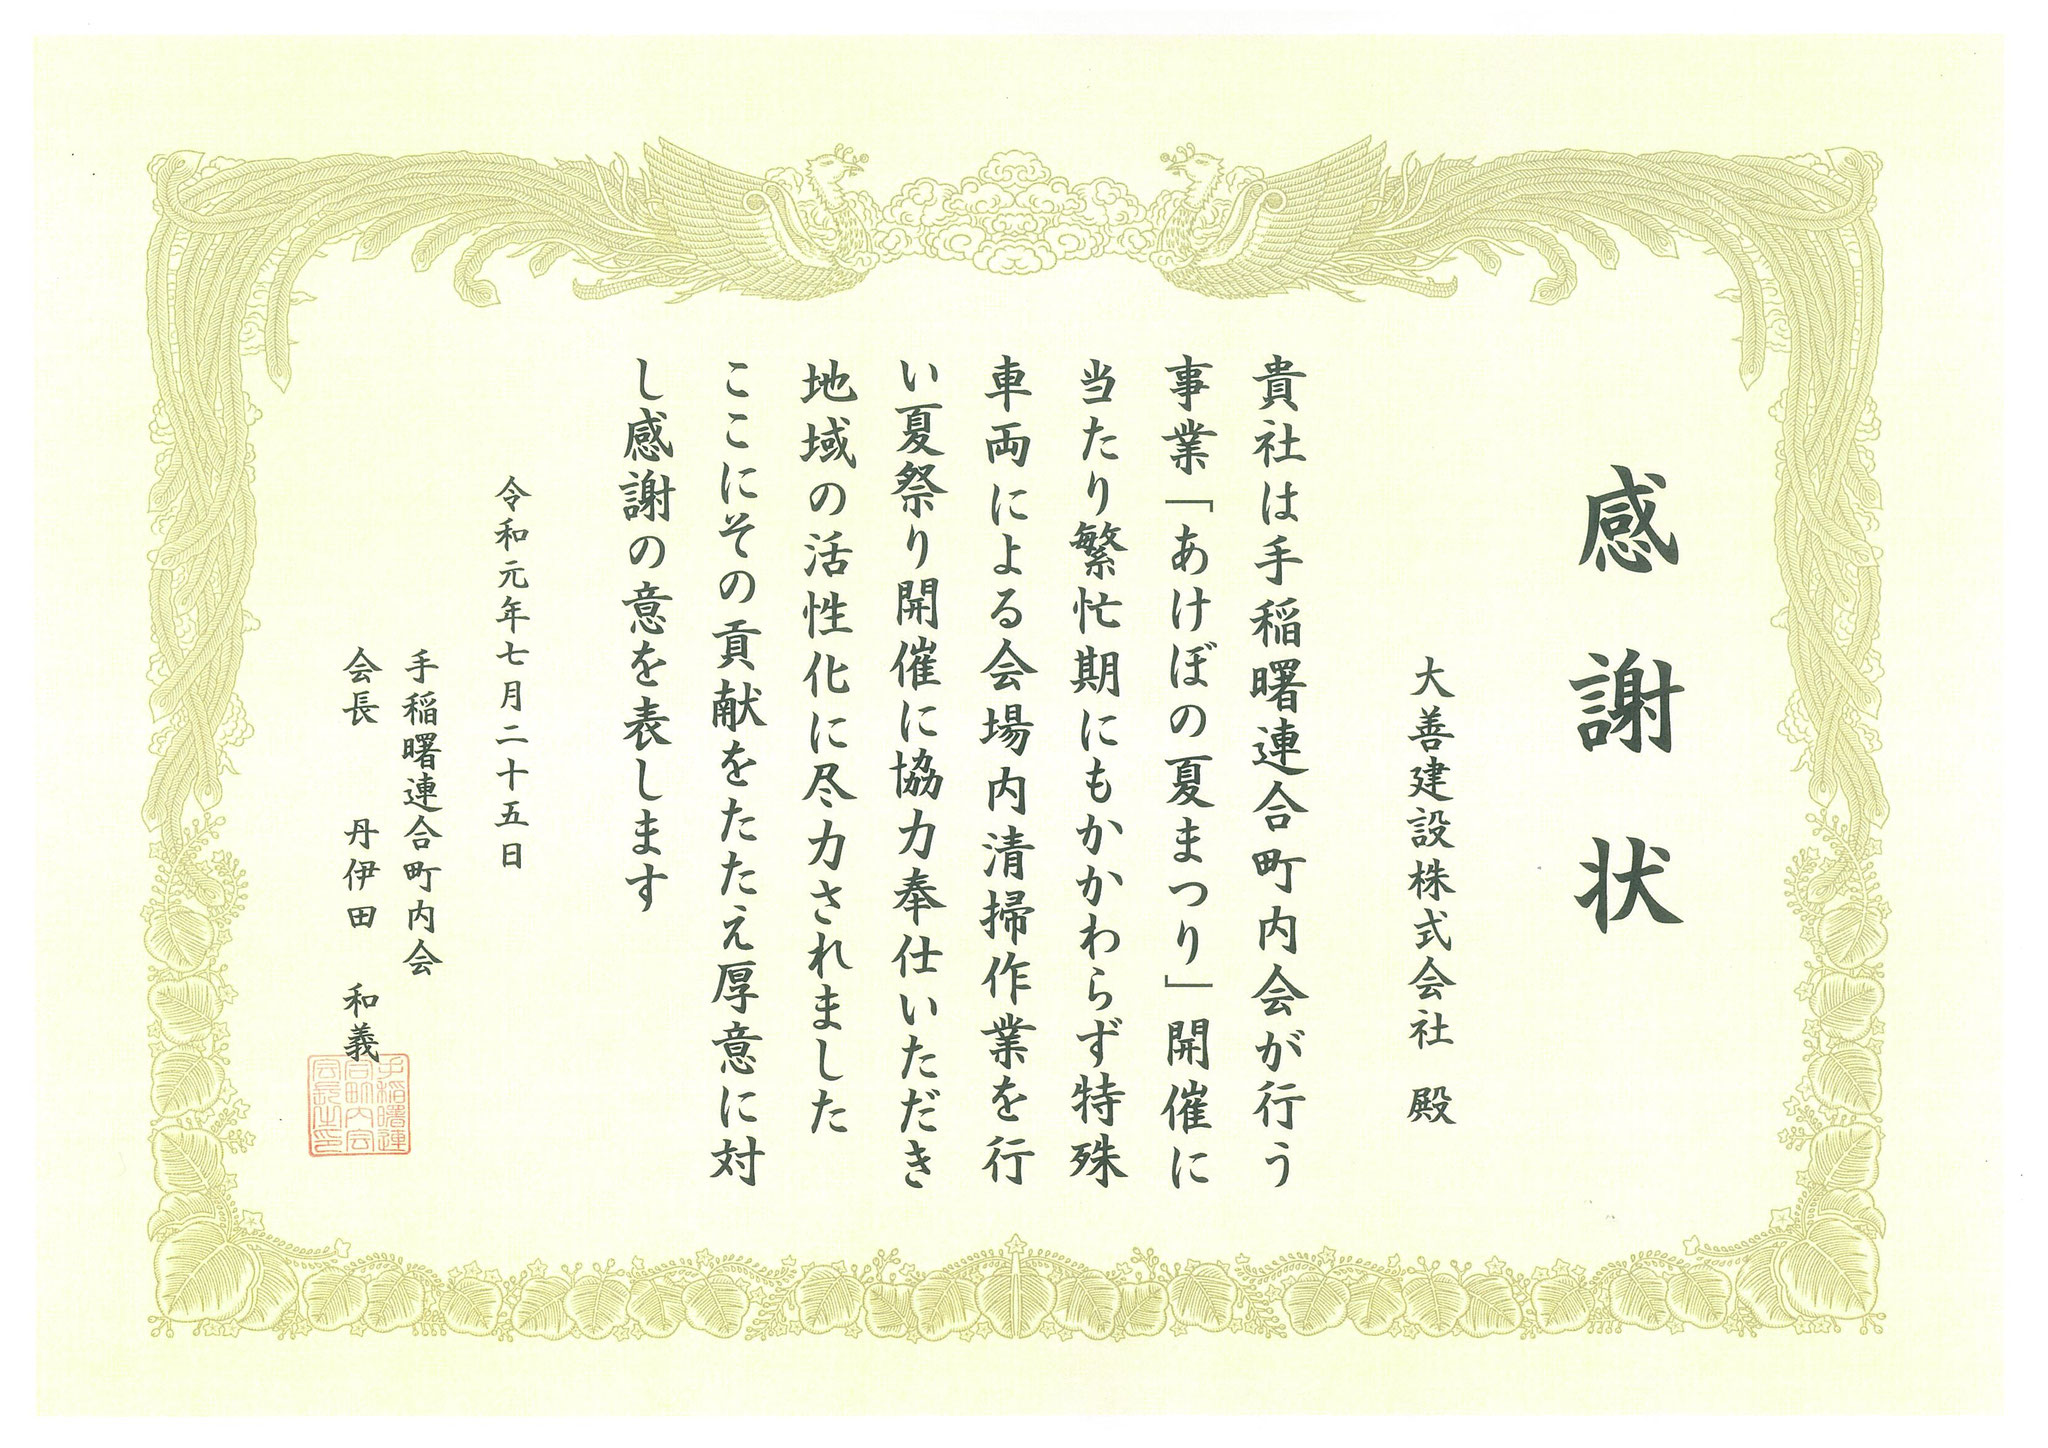 感謝状
大善建設株式会社 殿
貴社は手稲曙連合町内会が行う
事業「あけぼの夏まつり」開催に
当たり繁忙期にもかかわらず特殊
車両による会場内清掃作業を行
い夏祭り開催に協力奉仕いただき
地域の活性化に尽力されました
ここにその貢献をたたえ厚意に対
し感謝の意を表します
令和元年七月二十五日
手稲曙連合町内会
会長 丹伊田 和義
手稲曙連
合町内会
会長之印